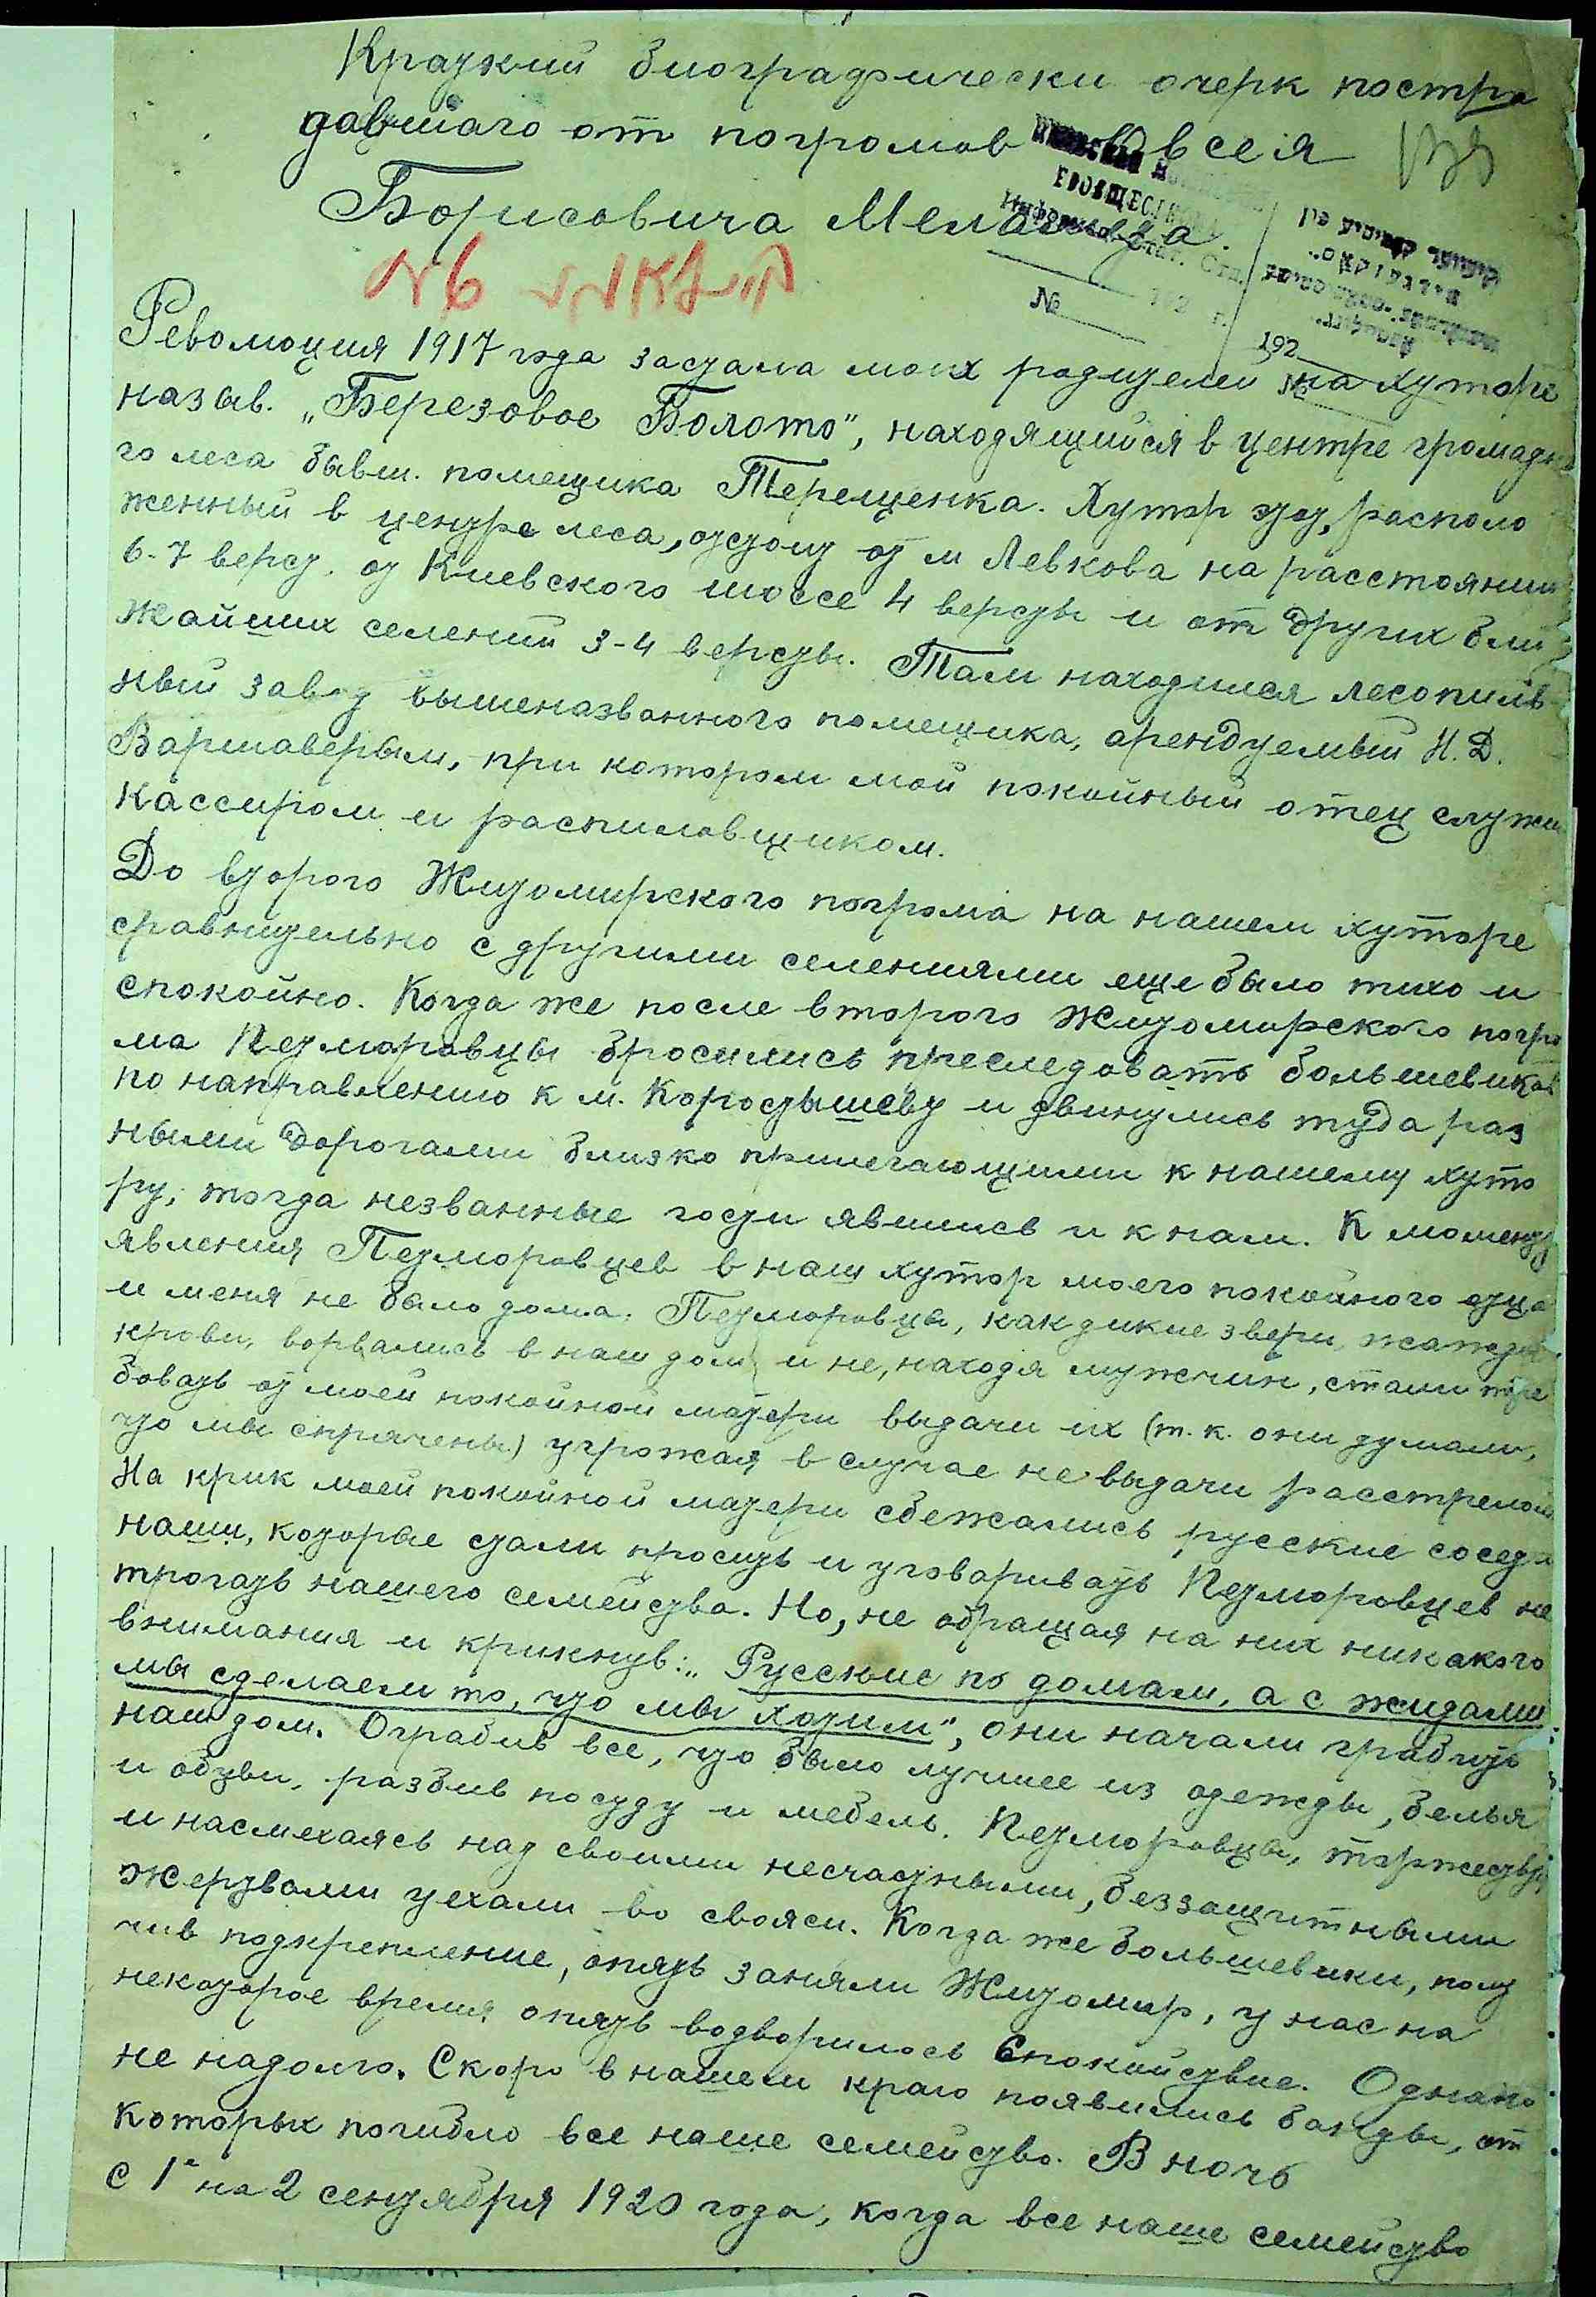 Краткий биографически очерк постра
давшаго от погромов Овсея
Борисовича Меламеда.
192 г.
№
192
№
Революция 1917 года застала моих родителей на хуторе
назыв. „Березовое Болото", находящийся в центре громадно
го леса бывш. помещика Терещенка. Хутор этот, располо
женный в центре леса, отстоит от м Левкова на расстоянии
6-7 верст, от Киевского шоссе 4 версты и от других бли
жайших селений 3-4 версты. Там находился лесопиль
ный завод вышеназванного помещика, арендуемый И. Д.
Варшавером, при котором мой покойный отец служил
кассиром и распиловщиком.
До второго Житомирского погрома на нашем хуторе
сравнительно с другими селениями еще было тихо и
спокойно. Когда же после второго Житомирского погро
ма Петлюровцы бросились преследовать большевиков
по направлению к м. Коростышеву и двинулись туда раз
ными дорогами близко прилегающими к нашему хуто
ру, тогда незванные гости явились и к нам. К моменту
явления Петлюровцев в наш хутор моего покойного отца
и меня не было дома. Петлюровцы, как дикие звери, жаждя
крови, ворвались в наш дом и не, находя мужчин, стали тре
бовать от моей покойной матери выдачи их (т. к. они думали,
что мы спрячены) угрожая в случае не выдачи расстрелом
На крик моей покойной матери сбежались русские соседи
наши, которые стали просить и уговаривать Петлюровцев не
трогать нашего семейства. Но, не обращая на них никакого
внимания и крикнув: „Русские по домам, а с жидами
мы сделаем то, что мы хотим", они начали грабить
наш дом. Ограбив все, что было лучшее из одежды, белья
и обуви, разбив посуду и мебель. Петлюровцы, торжествуя
и насмехаясь над своими несчастными, беззащитными
жертвами уехали во свояси. Когда же большевики, полу
чив подкрепление, опять заняли Житомир, у нас на
некоторое время опять водворилось спокойствие. Однако
не надолго. Скоро в нашем краю появились банды, от
которых погибло все наше семейство. В ночь
с 1 на 2 сентября 1920 года, когда все наше семейство